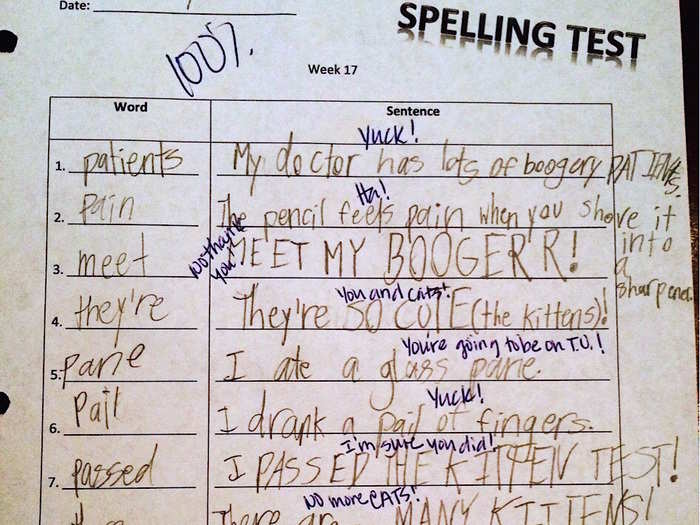 Date:
SPELLING TEST
100%.
Week 17
Word Sentence
Yuck!
1. patients My doctor has lots of boogery PATIENTS.
Ha!
2. pain The pencil feels pain when you shove it into a sharpener
No thank you!
3. meet MEET MY BOOGER'R!
You and cats!
4. they're They're SO CUTE (the kittens)!
You're going to be on T.V.!
5. pane I ate a glass pane.
Yuck!
6. Pail I drank a pail of fingers.
I'm sure you did!
7. passed I PASSED THE KITTEN TEST!
NO MORE CATS!
There are MANY KITTENS!